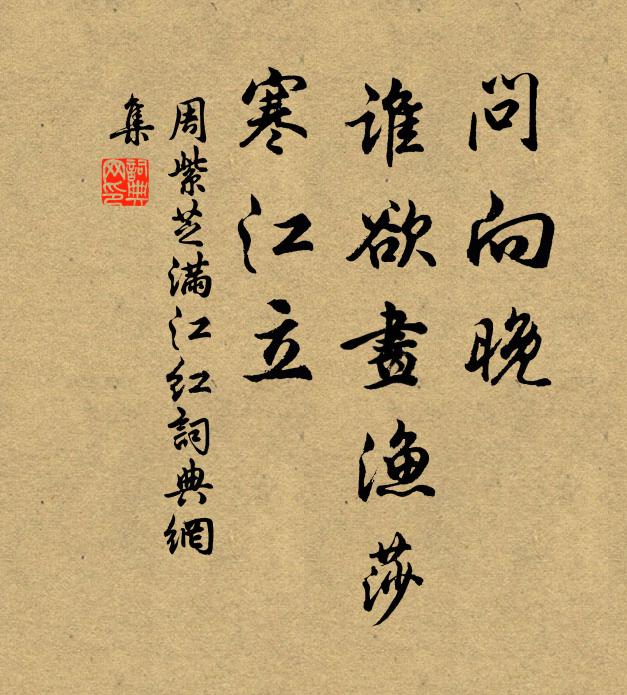 問向晚
誰欲畫漁莎
寒江立
周紫芝滿江紅詞典網
集
詞典
网印